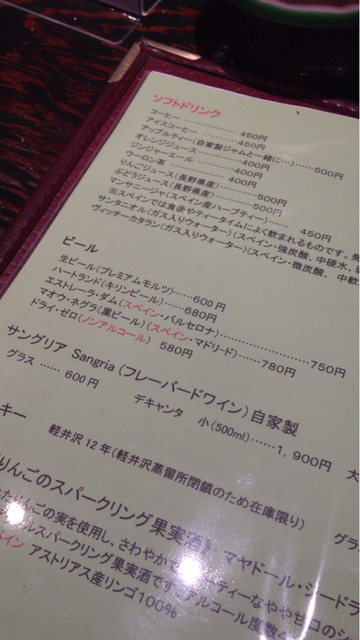 ソフトドリンク
コーヒー ………… 450円
アイスコーヒー ………450円
アップルティー(自家製ジャムと一緒に…)……500円
オレンジジュース………400円
ジンジャーエール ……… 400円
ウーロン茶 ………… 400円
りんごジュース(長野県産)………500円
ぶどうジュース(長野県産)………500円
マンサニージャ(スペイン産ハーブティー)…… 450円
※スペインでは食後やティータイムによく飲まれるものです。
サンタニオル(ガス入りウォーター)(スペイン・強炭酸、中硬水、
ヴィッチーカタラン(ガス入りウォーター)(スペイン・微炭酸、
ビール
生ビール(プレミアムモルツ)……600円
ハートランド(キリンビール)……680円
エストレーラ・ダム(スペイン・バルセロナ)………………750円
マオウ・ネグラ(黒ビール)(スペイン・マドリード)……780円
ドライ・ゼロ(ノンアルコール) 580円
サングリア Sangria(フレーバードワイン)自家製
グラス …… 600円 デキャンタ 小(500ml)……1,900円 大
キー
軽井沢12年(軽井沢蒸留所閉鎖のため在庫限り) グラ
りんごのスパークリング果実酒》 マヤドール・シードラ
りんごの実を使用し、さわやかで
ティーなやや甘口の
スパークリング果実酒です。アルコール度数
ペイン アストリアス産リンゴ100%